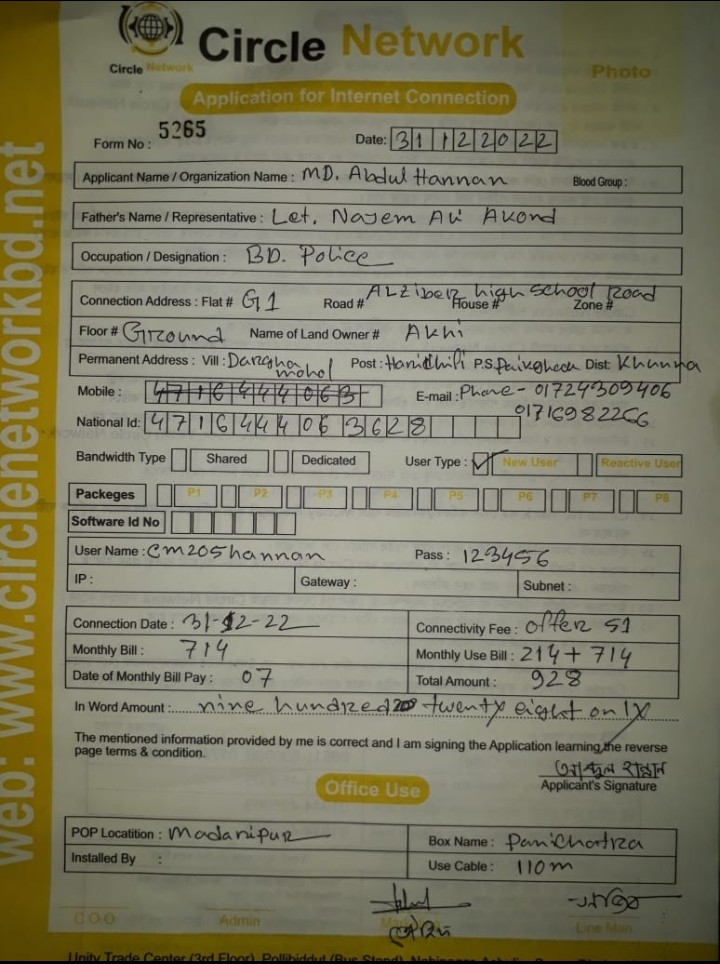 Circle Network
Circle Network
Photo
Application for Internet Connection
Form No : 5265
Date: 31 12 2022
Applicant Name / Organization Name : MD. Abdul Hannan Blood Group :
Father's Name / Representative : Let. Najem Ali Akond
Occupation / Designation : BD. Police
Connection Address : Flat # G1 Road # ALZiber high school Road House # Zone #
Floor # Ground Name of Land Owner # Akhi
Permanent Address : Vill : Dargha mohol Post : P.S. Dist: Khunna
Mobile : 4716444063 E-mail : Phone - 01724309406
01716982266
National Id: 4716444063628
Bandwidth Type Shared Dedicated User Type : ✓ New User Reactive User
Packeges P1 P2 P3 P4 P5 P6 P7 P8
Software Id No
User Name : cm205hannan Pass : 123456
IP : Gateway : Subnet :
Connection Date : 31-12-22 Connectivity Fee : offer 51
Monthly Bill : 714 Monthly Use Bill : 214 + 714
Date of Monthly Bill Pay : 07 Total Amount : 928
In Word Amount : nine hundred twenty eight only
The mentioned information provided by me is correct and I am signing the Application learning the reverse
page terms & condition.
আব্দুল হান্নান
Applicant's Signature
Office Use
POP Locatition : Madanipur Box Name : Panichatra
Installed By : Use Cable : 110m
C.O.O Admin Line Man
Unity Trade Center (3rd Floor), Pollibiddut (Bus Stand),
web: www.circlenetworkbd.net